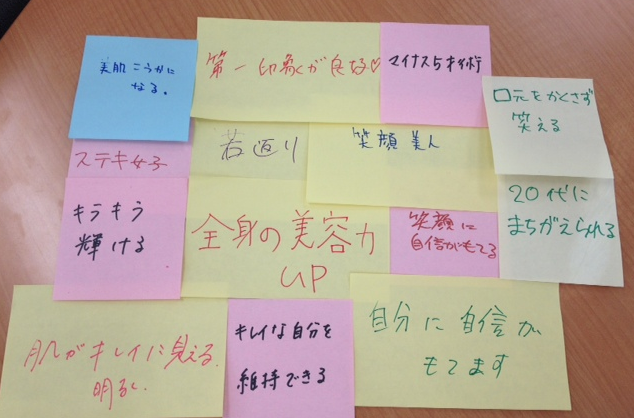 美肌こうかに
なる。
第一印象が良好♡
マイナス5才肌
口元をかくさず
笑える
ステキ女子
若返り
笑顔美人
20代に
まちがえられる
キラキラ
輝ける
全身の美容力
UP
笑顔に
自信がもてる
肌がキレイに見える
明るい
キレイな自分を
維持できる
自分に自信が
もてます